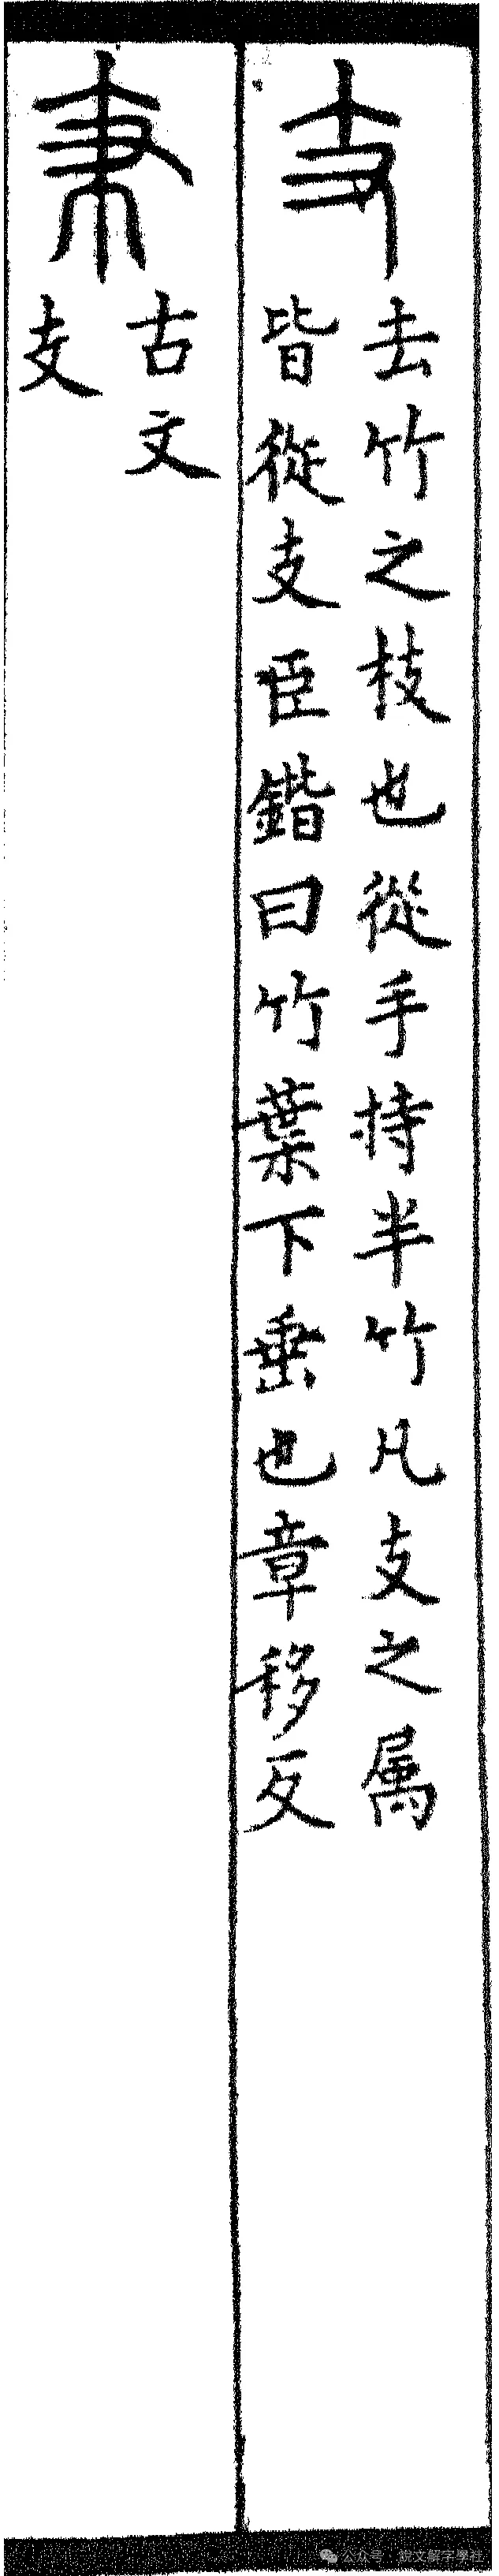 支
去竹之枝也從手持半竹凡支之属
皆從支臣鍇曰竹葉下垂也章移反
𠦙
古文
支
公众号·說文解字學社